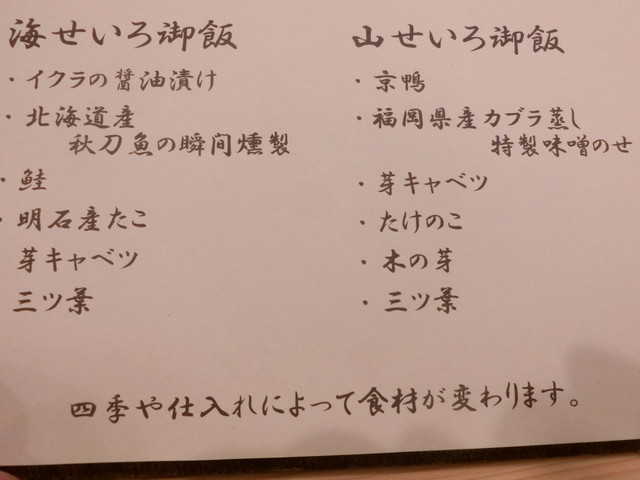 海せいろ御飯
・イクラの醤油漬け
・北海道産
秋刀魚の瞬間燻製
・鮭
・明石産たこ
芽キャベツ
三ツ葉
山せいろ御飯
・京鴨
・福岡県産カブラ蒸し
特製味噌のせ
・芽キャベツ
・たけのこ
・木の芽
・三ツ葉
四季や仕入れによって食材が変わります。